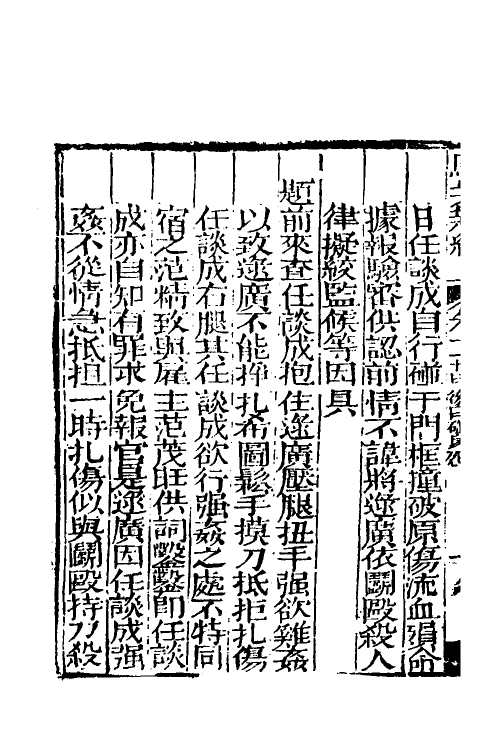 日任談成自行碰于門框撞破原傷流血殞命
據報驗審供認前情不諱將逵廣依鬭毆殺人
律擬絞監候等因具
題前來查任談成抱住逵廣壓腿扭手强欲雞姦
以致逵廣不能掙扎布圖鬆手摸刀抵拒扎傷
任談成右腿其任談成欲行强姦之處不特同
宿之范精致與雇主范茂旺供詞鑿鑿即任談
成亦自知有罪求免報官是逵廣因任談成强
姦不從情急抵拒一時扎傷似與鬭毆持刀殺